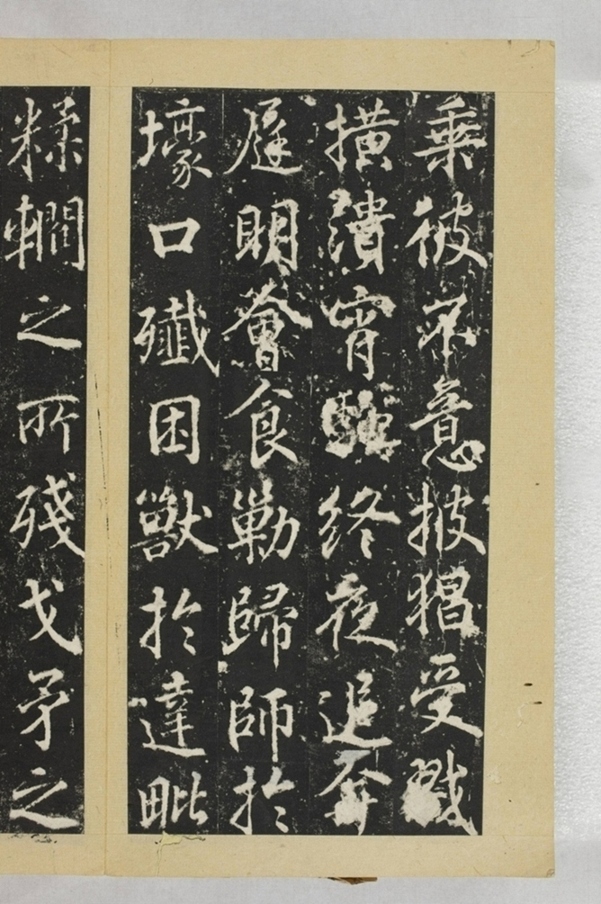 乘彼不意披猖受戮
撗潰宵終夜追奔
遲明會食勒歸師於
壕口殲困獸於達毗
糅之所殘戈矛之